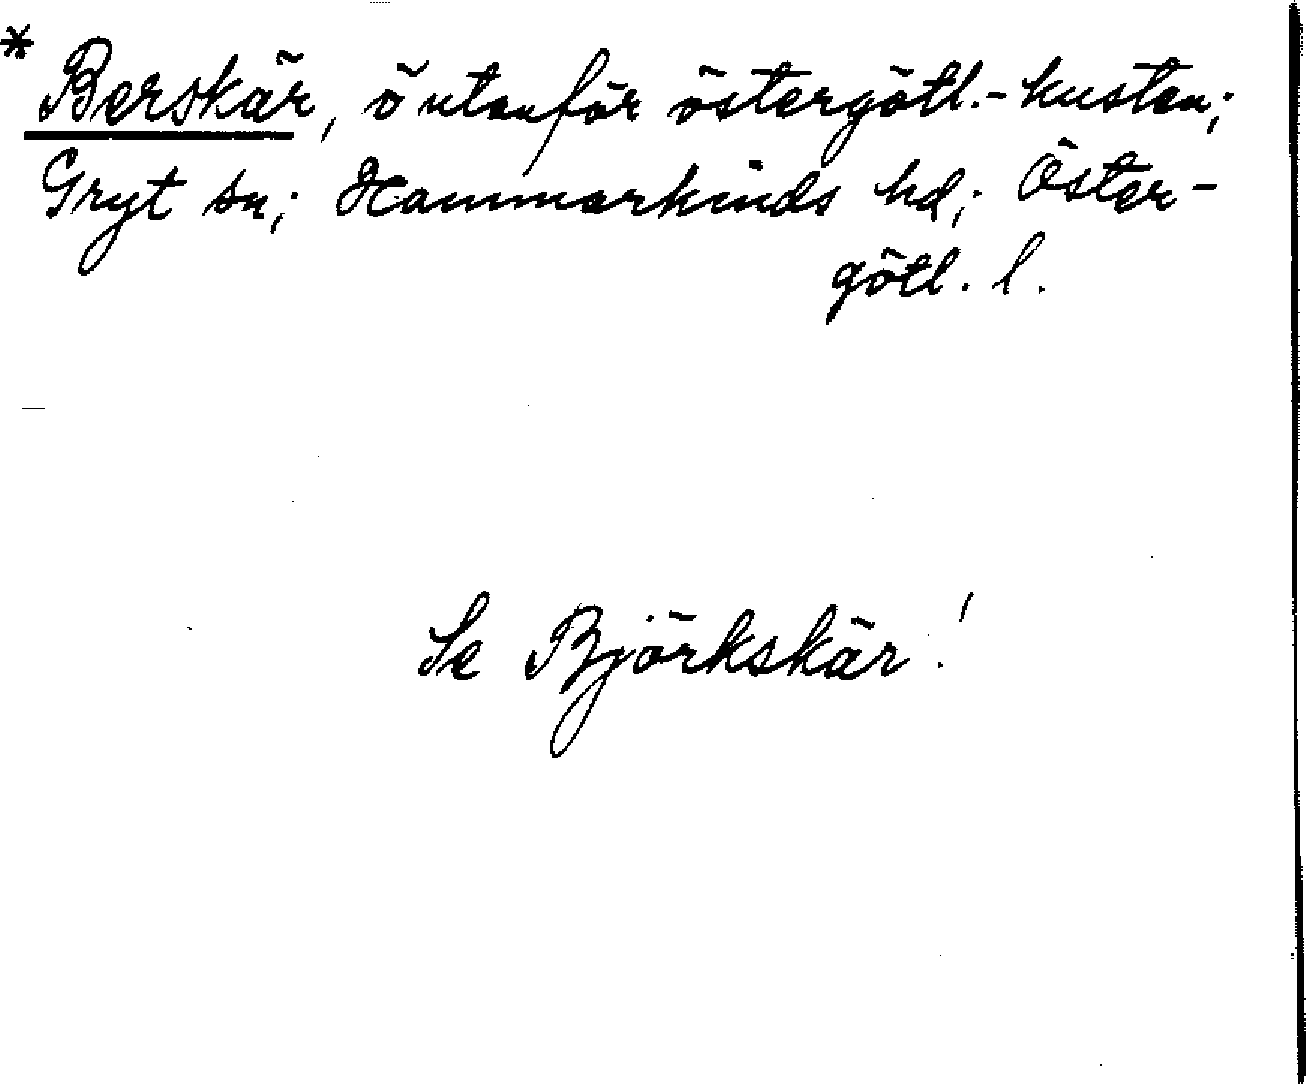 * Berskär, ö utanför östergötl.-kusten;
Gryt sn; Hammarkinds hd; Öster-
götl. l.
Se Björkskär!